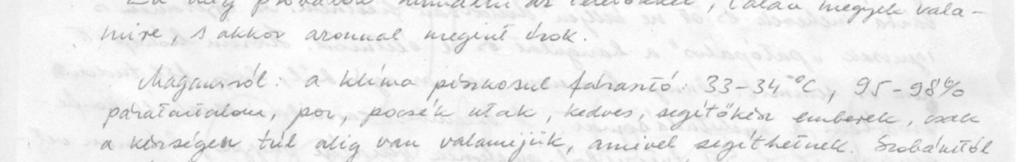 még próbálok            , talán megyek vala-
mire, s akkor azonnal megint írok.
Magamról: a klíma piszkosul fárasztó: 33-34 °C, 95-98%
páratartalom, por, pocsék utak, kedves, segítőkész emberek, csak
a készségen túl alig van valamijük, amivel segíthetnek. Szobámtól